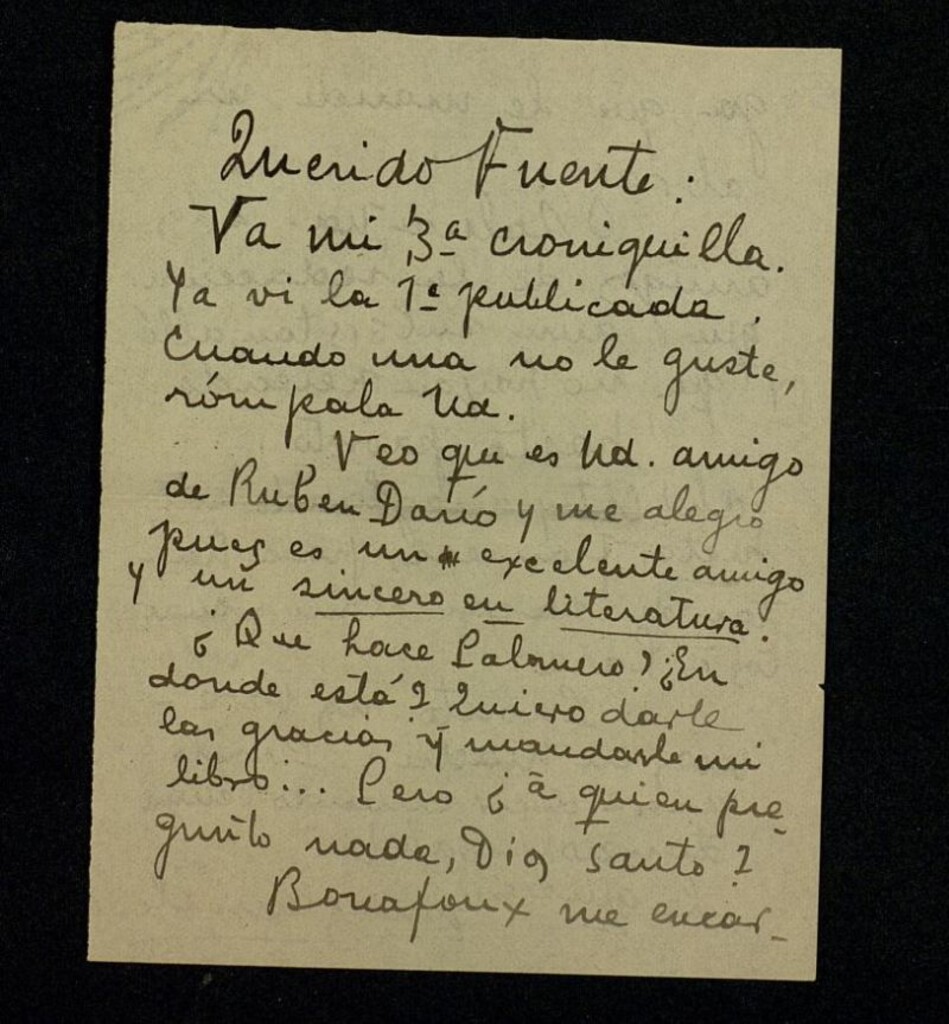 Querido Fuente:
Va mi 3ª croniquilla.
Ya vi la 1ª publicada.
Cuando una no le guste,
rómpala Ud.
Veo que es Ud. amigo
de Ruben Darío y me alegro
pues es un excelente amigo
y un sincero en literatura.
¿Que hace Palomero? ¿En
donde está? Quiero darle
las gracias y mandarle mi
libro... Pero ¿á quien pre-
gunto nada, Dios santo?
Bonafoux me encar-